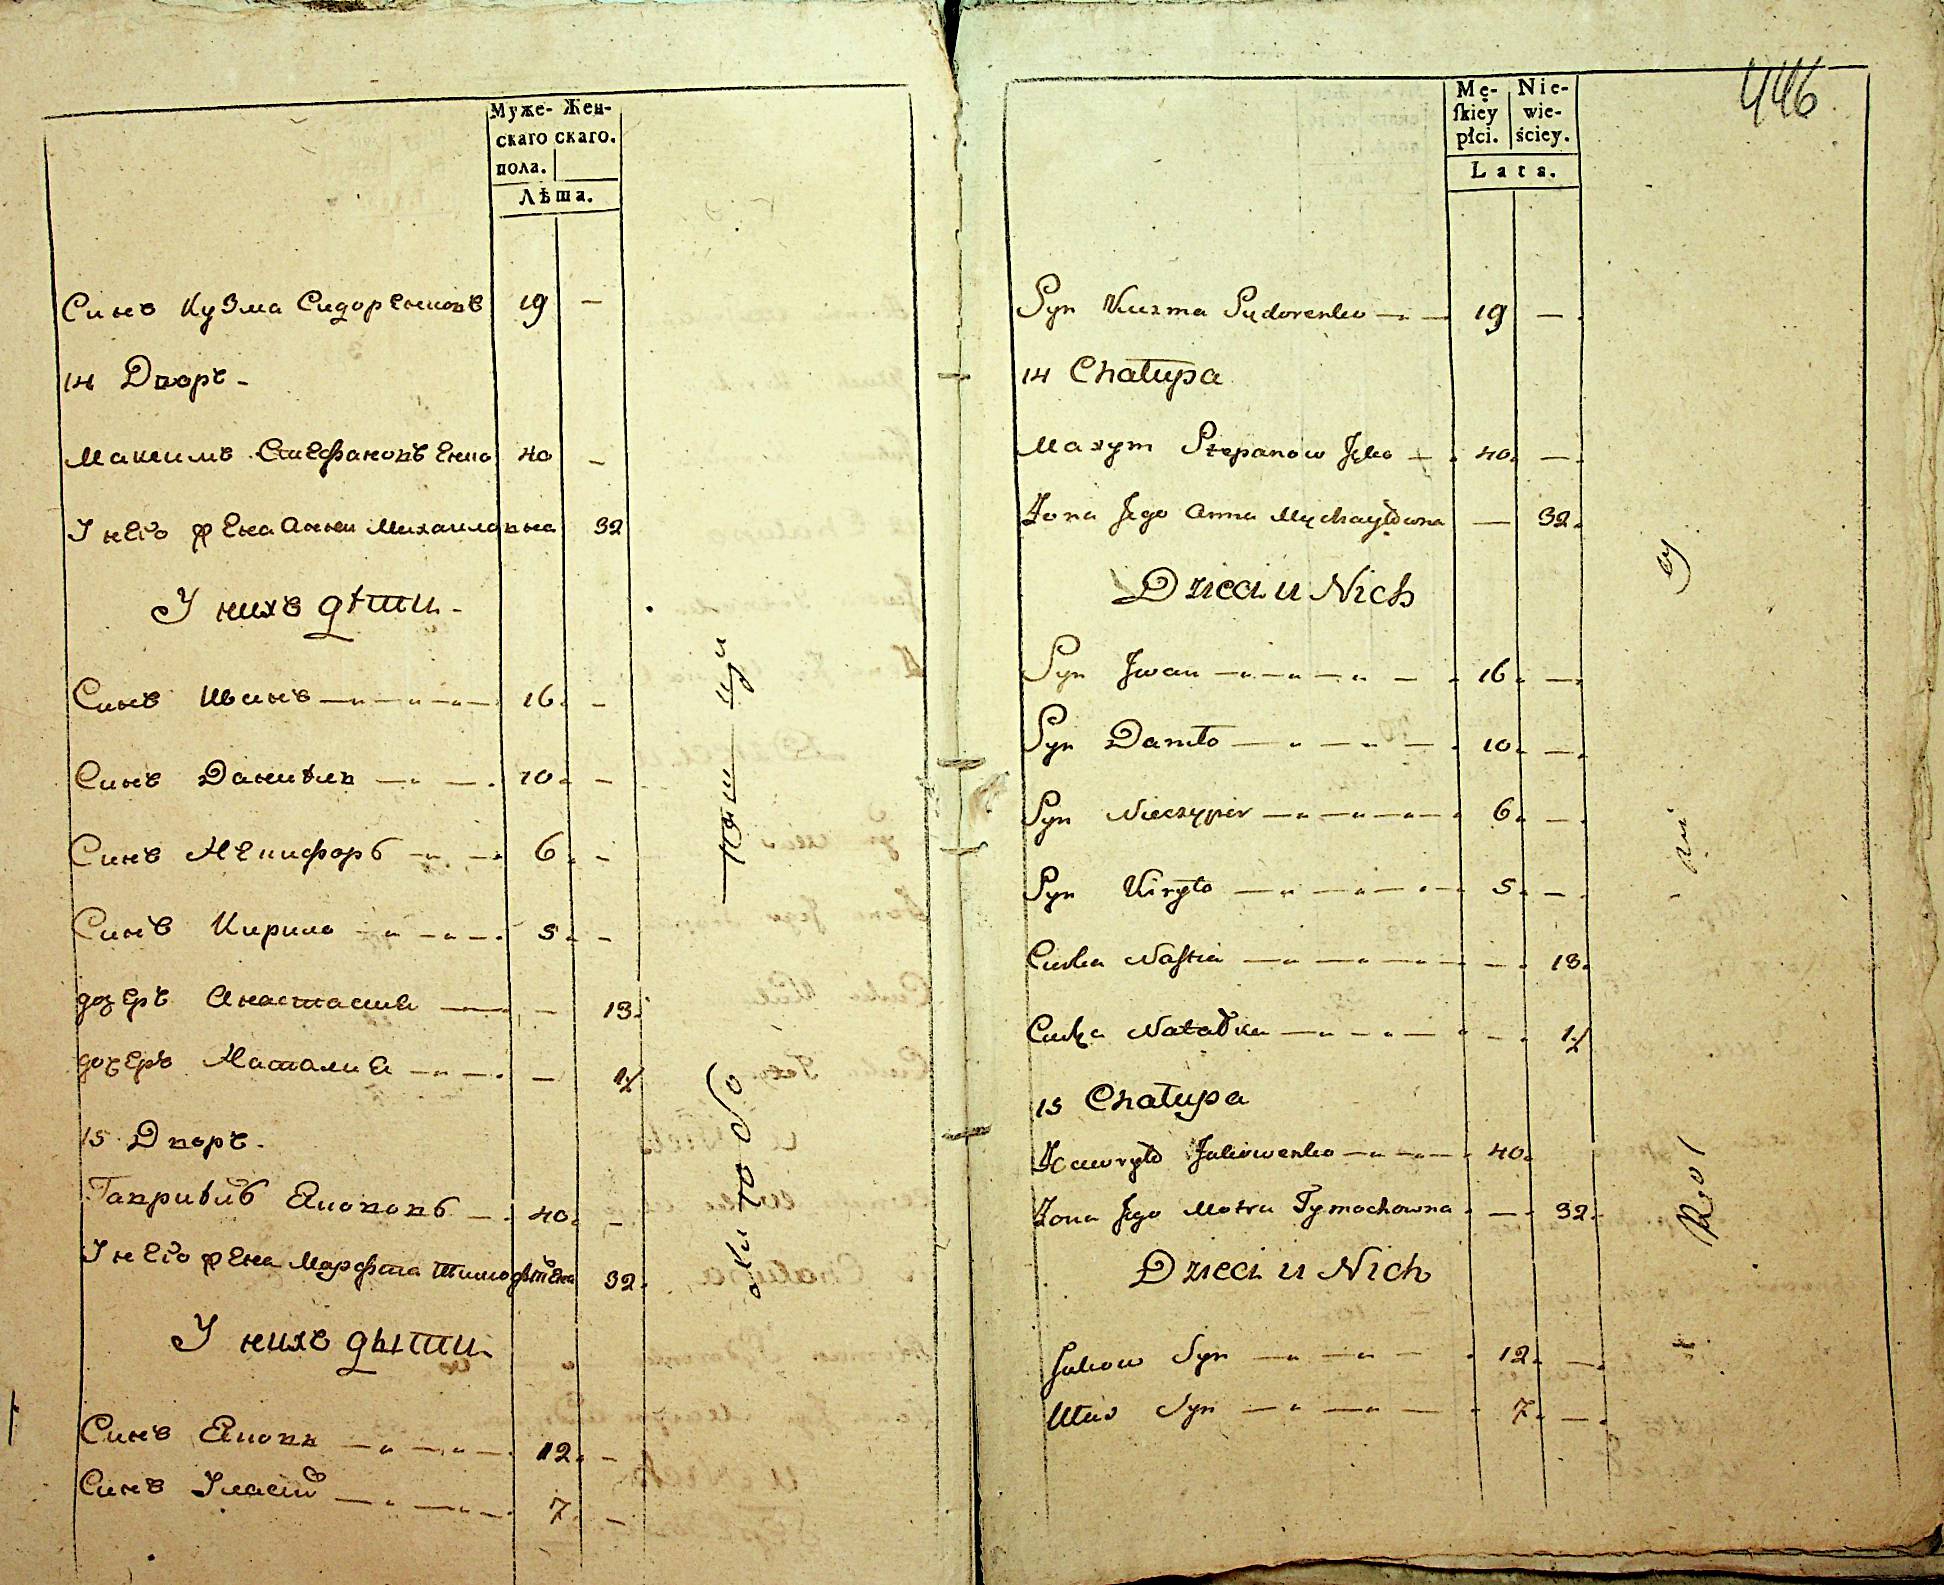 Муже- Жен-
скаго скаго.
пола.
Лѣта.
Синъ Кузма Сидоренковъ 19 —
14 Дворъ -
Максимъ Стефановъ Енко 40 —
У него жена Анна Михаиловна 32
У нихъ дѣти -
Синъ Иванъ 16 -
Синъ Даніилъ 10 -
Синъ Никифоръ 6 -
Синъ Кирило 5 -
дочеръ Анастасия - 13
дочеръ Наталия -
15 Дворъ -
Гавриіилъ Якововъ 40 -
У него жена Марфта Тимофѣевна 32
У нихъ дѣти
Синъ Яковъ 12 -
Синъ Уласій 7 -
446
Mę- Nie-
ſkiey wie-
płci. ściey.
Lata.
Syn Kuzma Sydorenko 19 —
14 Chałupa
Maxym Stepanow Jęko 40 —
Żona Jego Anna Mychayłowna — 32
Dzieci u Nich
Syn Jwan 16 —
Syn Daniło 10 —
Syn Nieczypir 6 —
Syn Kiryło 5 —
Curka Nastia — 13
Curka Natałka —
15 Chałupa
Hawryło Jakowenko 40
Żona Jego Motra Tymochowna — 32
Dzieci u Nich
Jakow Syn 12 —
Ułas Syn 7 —